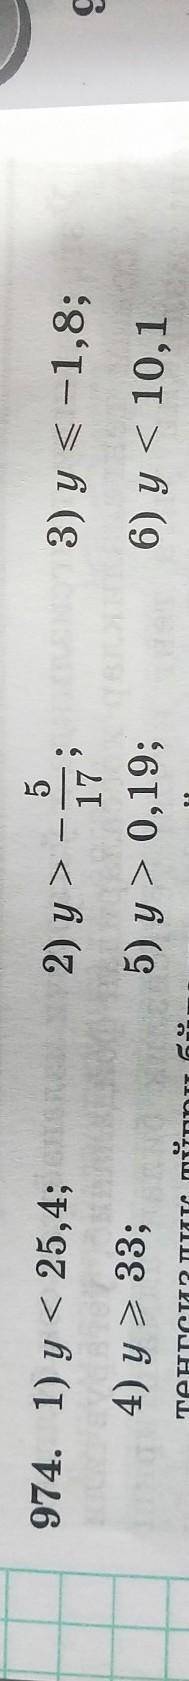 974. 1) y < 25,4; 2) y > −5/17; 3) y ⩽ −1,8;
4) y ⩾ 33; 5) y > 0,19; 6) y < 10,1